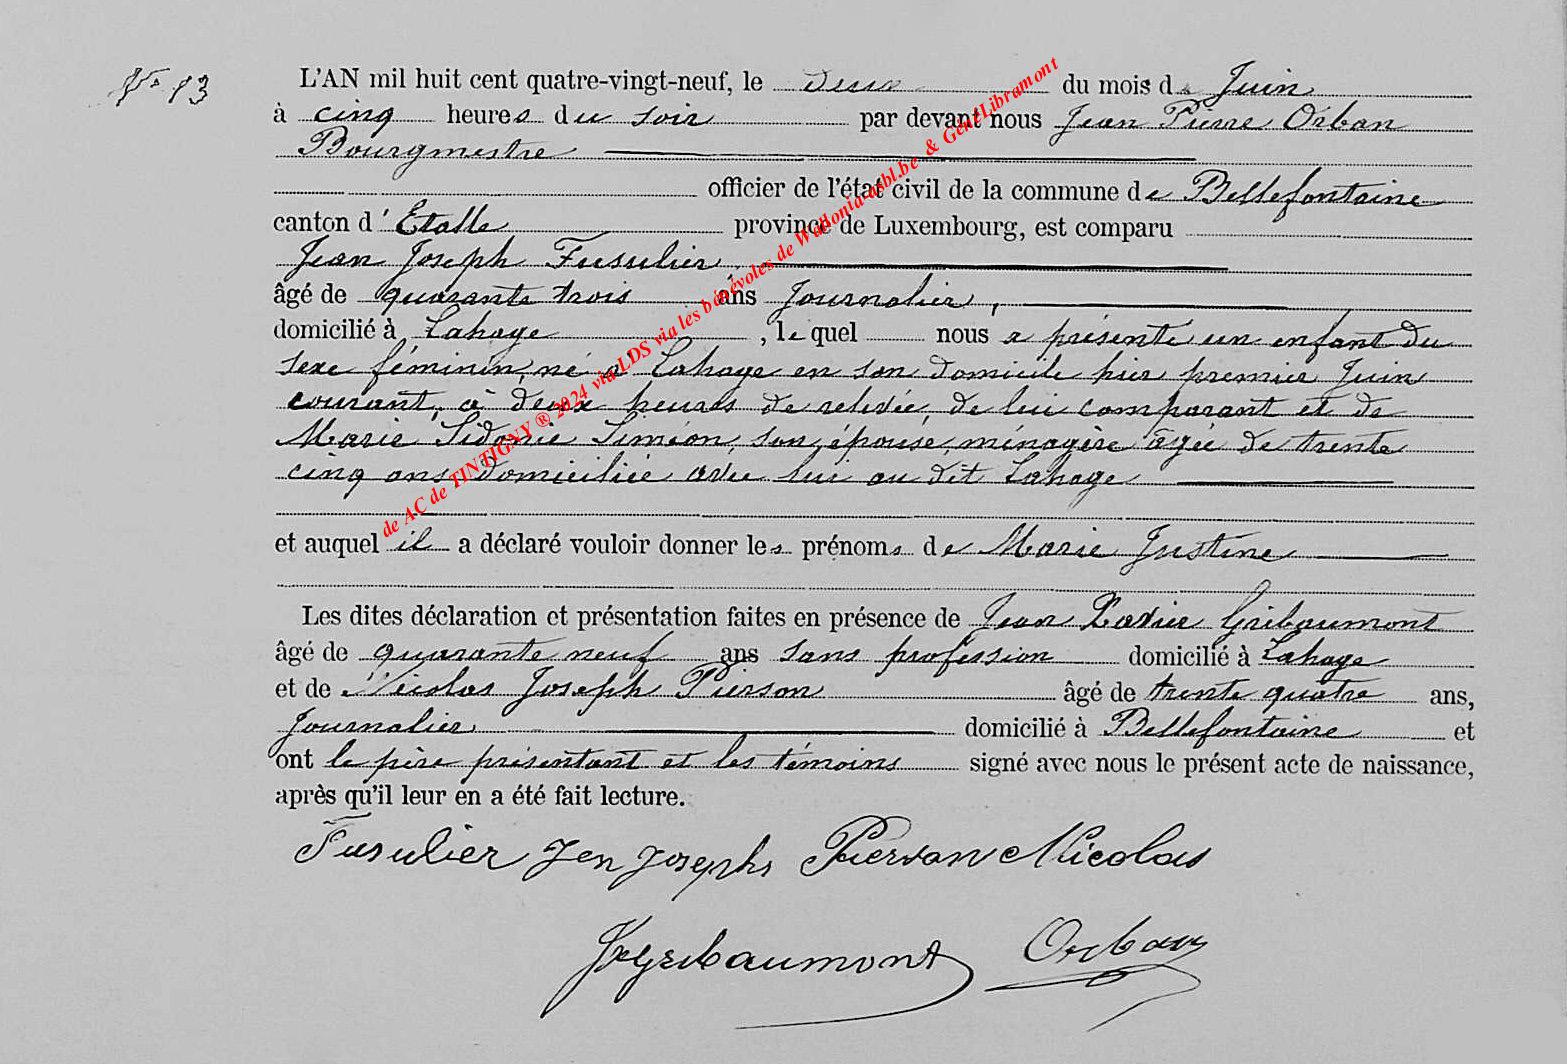 N° 13
L'AN mil huit cent quatre-vingt-neuf, le deux du mois de Juin
à cinq heures du soir par devant nous Jean Pierre Orban
Bourgmestre
officier de l'état civil de la commune de Bellefontaine
canton d'Etalle province de Luxembourg, est comparu
Jean Joseph Fusulier,
âgé de quarante trois ans Journalier,
domicilié à Lahage, lequel nous a présenté un enfant du
sexe féminin, né à Lahage en son domicile hier premier Juin
courant, à deux heures de relevée, de lui comparant et de
Marie Sidonie Siméon, son épouse, ménagère âgée de trente
cinq ans domiciliée avec lui au dit Lahage
et auquel il a déclaré vouloir donner les prénoms de Marie Justine
Les dites déclaration et présentation faites en présence de Jean Xavier Gribaumont
âgé de quarante neuf ans sans profession domicilié à Lahage
et de Nicolas Joseph Pierson âgé de trente quatre ans,
Journalier domicilié à Bellefontaine et
ont le père présentant et les témoins signé avec nous le présent acte de naissance,
après qu'il leur en a été fait lecture.
Fusulier Jen Josephs Pierson Nicolas
JXGribaumont Orban
de AC de TINTIGNY ® 2024 via LDS via les bénévoles de Wallonia-asbl.be & GenLibramont